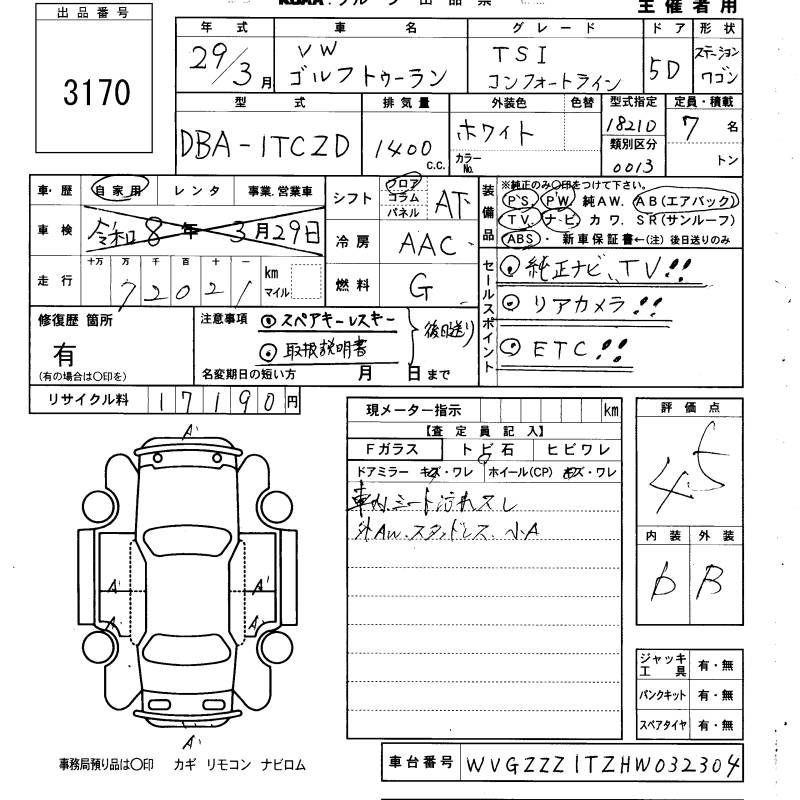 主催者用
出品番号
3170
年式 車名 グレード ドア 形状
29/3月 VW ゴルフトゥーラン TSI コンフォートライン 5D ステーションワゴン
型式 排気量 外装色 色替 型式指定 定員・積載
DBA-1TCZD 1400 c.c. ホワイト 18210 7名
カラーNo. 類別区分 0013 トン
車・歴 自家用 レンタ 事業.営業車
車検 令和8年3月29日
走行 十万 万 千 百 十 一 km マイル
72021
シフト フロア コラム パネル AT
冷房 AAC
燃料 G
装備品 ※純正のみ〇印をつけて下さい。
P'S. P'W. 純AW. AB(エアバック)
TV. ナ・ビ カワ. SR(サンルーフ)
ABS・ 新車保証書←(注) 後日送りのみ
セールスポイント
純正ナビ、TV!!
リアカメラ!!
ETC!!
修復歴 箇所
有
(有の場合は〇印を)
注意事項 スペアキーレスキー
取扱説明書
後日送り
名変期日の短い方 月 日まで
リサイクル料 17190円
現メーター指示 km
【査定員記入】
Fガラス トビ石 ヒビワレ
ドアミラー キズ・ワレ ホイール(CP) キズ・ワレ
車内、シート汚れスレ
外AW.スタッドレス 小A
評価点
4.5
内装 外装
b B
ジャッキ工具 有・無
パンクキット 有・無
スペアタイヤ 有・無
A'
A' A'
A' A'
A'
事務局預り品は〇印 カギ リモコン ナビロム
車台番号 WVGZZZ1TZHW032304